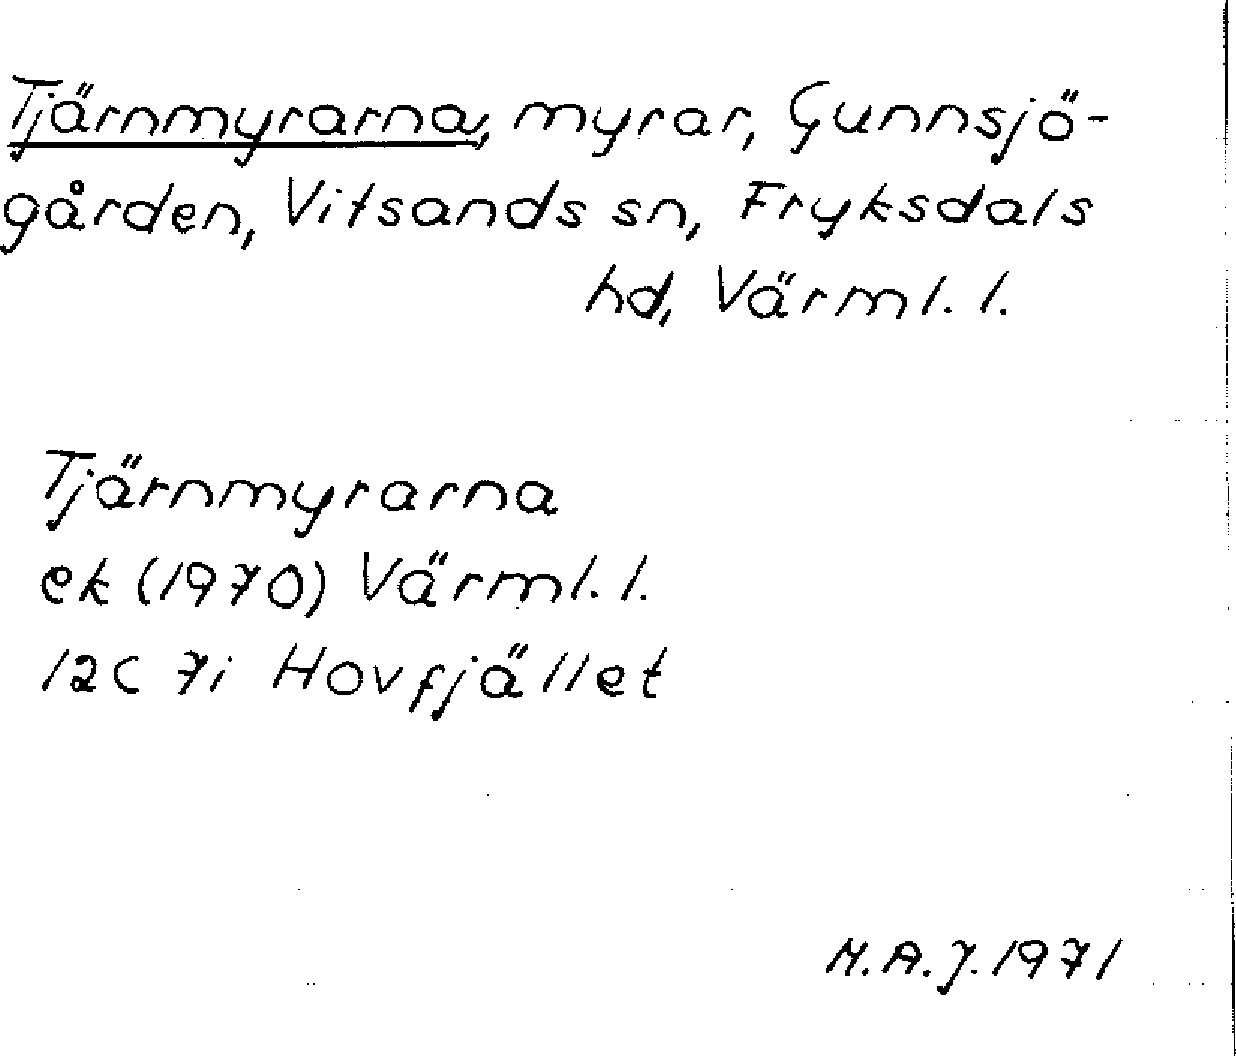 Tjärnmyrarna, myrar, Gunnsjö-
gården, Vitsands sn, Fryksdals
hd, Värml. l.
Tjärnmyrarna
ek (1970) Värml. l.
12C 7i Hovfjället
M.A.J. 1971